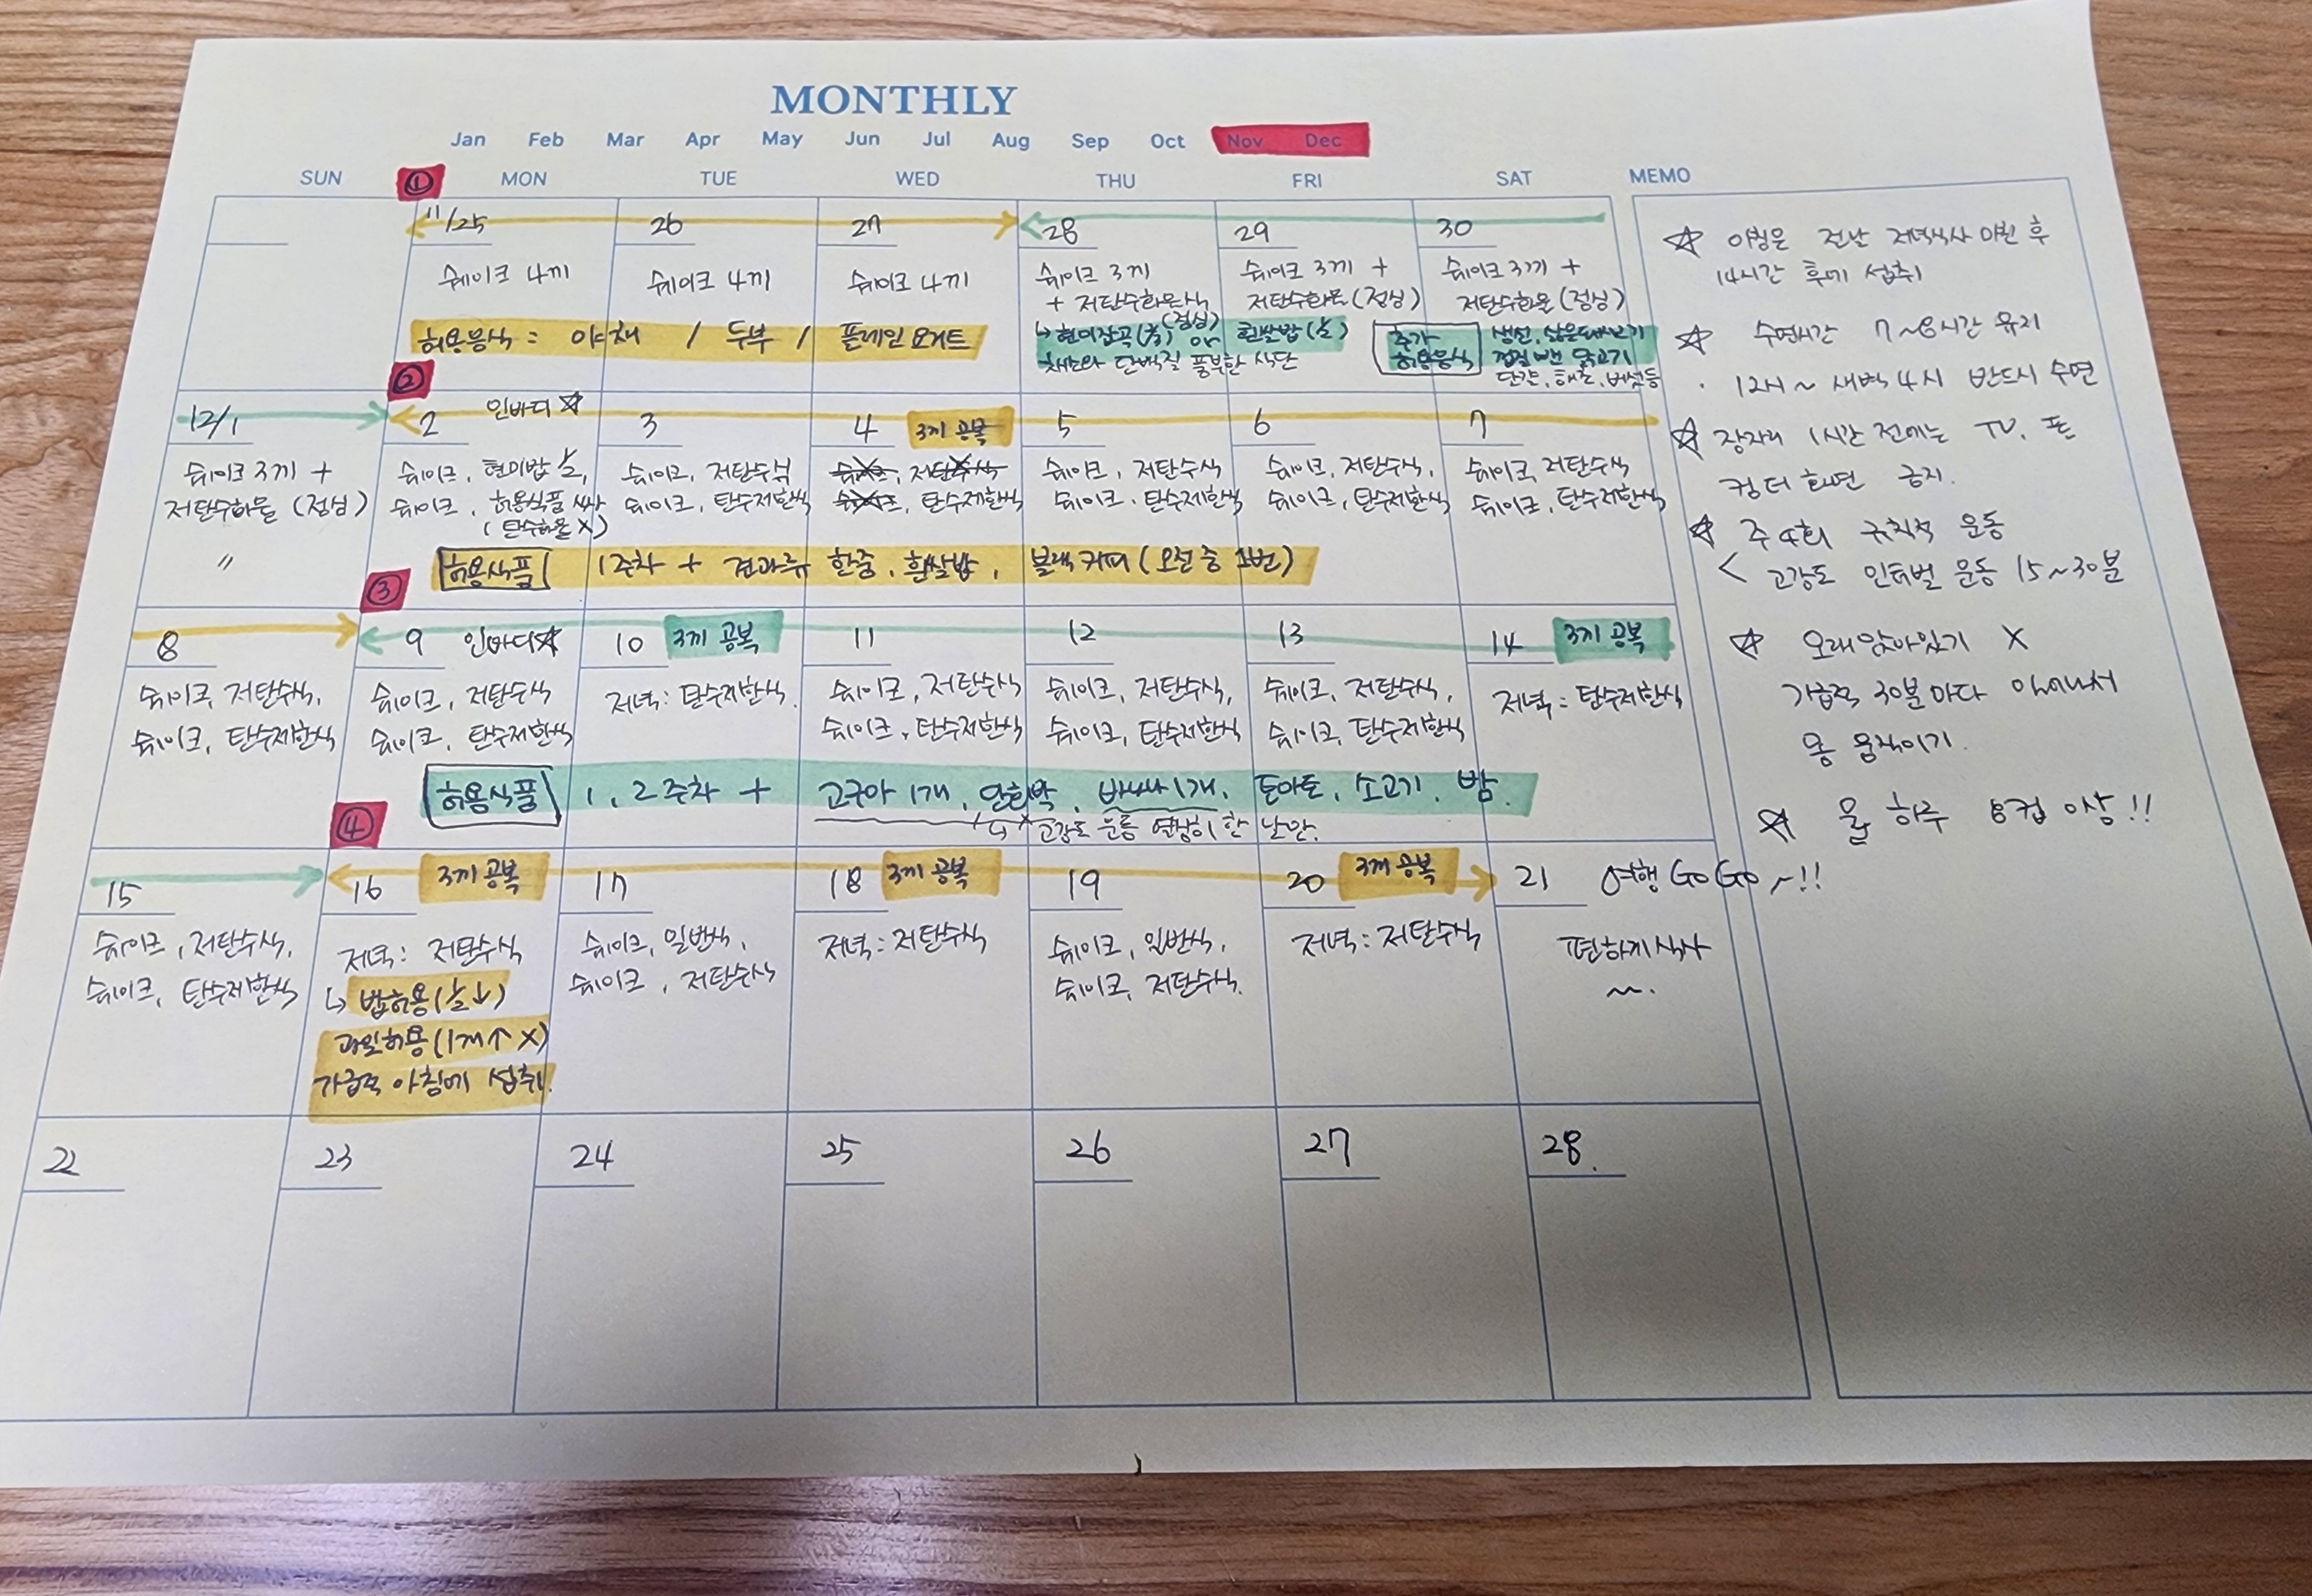 MONTHLY
Jan Feb Mar Apr May Jun Jul Aug Sep Oct Nov Dec
SUN MON TUE WED THU FRI SAT MEMO
①
11/25
쉐이크 4끼
26
쉐이크 4끼
27
쉐이크 4끼
허용음식 = 야채 / 두부 / 플레인 요거트
28
쉐이크 3끼
+ 저탄수화물식
(점심)
↳ 현미잡곡(⅔) or 흰쌀밥(½)
채소와 단백질 풍부한 식단
29
쉐이크 3끼 +
저탄수화물 (점심)
30
쉐이크 3끼 +
저탄수화물 (점심)
추가
허용음식
생선, 삶은돼지고기
껍질 뺀 닭고기
단걀, 해초, 버섯등
12/1
쉐이크 3끼 +
저탄수화물 (점심)
〃
②
2 인바디☆
쉐이크, 현미밥 ½,
쉐이크, 허용식품
(탄수화물 X)
3
쉐이크, 저탄수식
쉐이크, 탄수제한식
4 3끼 공복
쉐이크, 저탄수식
쉐이크, 탄수제한식
5
쉐이크, 저탄수식
쉐이크, 탄수제한식
6
쉐이크, 저탄수식,
쉐이크, 탄수제한식
7
쉐이크, 저탄수식
쉐이크, 탄수제한식
허용식품 1주차 + 견과류 한줌, 흰쌀밥, 블랙커피 (오전 중 1번)
8
쉐이크, 저탄수식,
쉐이크, 탄수제한식
③
9 인바디☆
쉐이크, 저탄수식
쉐이크, 탄수제한식
10 3끼 공복
저녁: 탄수제한식.
11
쉐이크, 저탄수식
쉐이크, 탄수제한식
12
쉐이크, 저탄수식,
쉐이크, 탄수제한식
13
쉐이크, 저탄수식,
쉐이크, 탄수제한식
14 3끼 공복
저녁: 탄수제한식
허용식품 1, 2주차 + 고구마 1개, 단호박, 바나나 1개, 토마토, 소고기, 밤.
↳ 고강도 운동 열심히 한 날만.
15
쉐이크, 저탄수식,
쉐이크, 탄수제한식
④
16 3끼 공복
저녁: 저탄수식
↳ 밥허용(½↓)
과일허용(1개↑ X)
가급적 아침에 섭취.
17
쉐이크, 일반식,
쉐이크, 저탄수식
18 3끼 공복
저녁: 저탄수식
19
쉐이크, 일반식,
쉐이크, 저탄수식.
20 3끼 공복
저녁: 저탄수식
21 여행 GoGo~!!
편하게 식사
~.
22
23
24
25
26
27
28.
☆ 아침은 전날 저녁식사 마친 후
14시간 후에 섭취
☆ 수면시간 7~8시간 유지
· 12시 ~ 새벽 4시 반드시 수면
☆ 잠자리 1시간 전에는 TV, 폰
컴터 화면 금지.
☆ 주 4회 규칙적 운동
< 고강도 인터벌 운동 15~30분
☆ 오래 앉아있기 X
가급적 30분마다 일어나서
몸 움직이기.
☆ 물 하루 8컵 이상!!